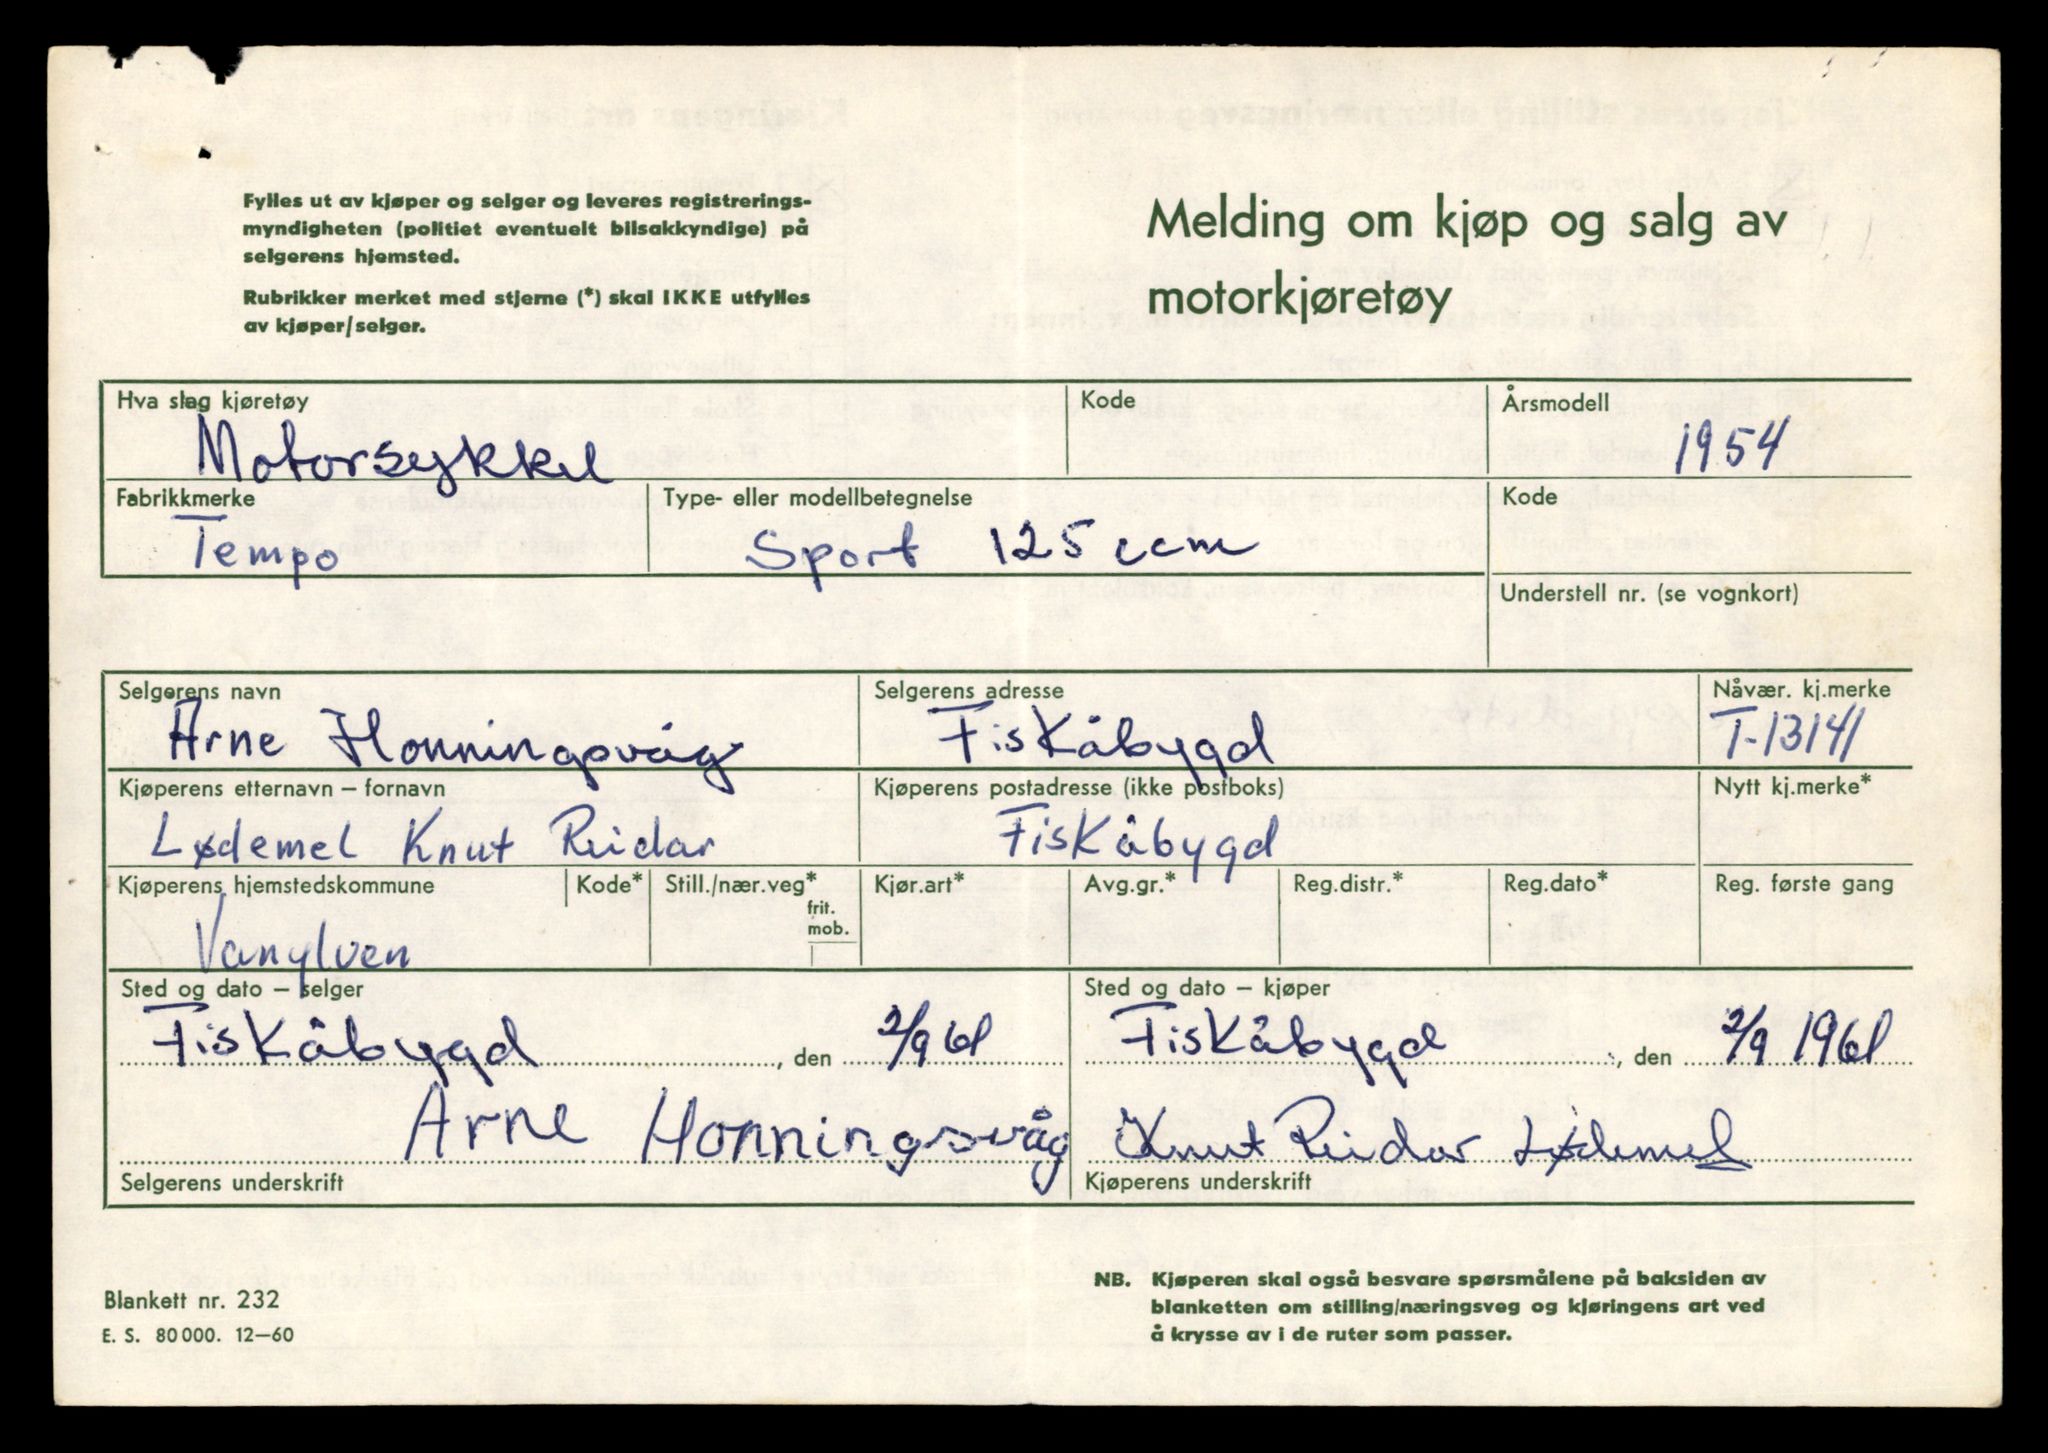 Fylles ut av kjøper og selger og leveres registrerings-
myndigheten (politiet eventuelt bilsakkyndige) på
selgerens hjemsted.
Rubrikker merket med stjerne (*) skal IKKE utfylles
av kjøper/selger.
Melding om kjøp og salg av
motorkjøretøy
Hva slag kjøretøy
Kode
Årsmodell
Motorsykkel
1954
Fabrikkmerke
Type- eller modellbetegnelse
Kode
Tempo
Sport 125 ccm
Understell nr. (se vognkort)
Selgerens navn
Selgerens adresse
Nåvær. kj.merke
Arne Honningsvåg
Fiskåbygd
T-13141
Kjøperens etternavn – fornavn
Kjøperens postadresse (ikke postboks)
Nytt kj.merke*
Lødemel Knut Reidar
Fiskåbygd
Kjøperens hjemstedskommune
Kode*
Still./nær.veg*
frit.
mob.
Kjør.art*
Avg.gr.*
Reg.distr.*
Reg.dato*
Reg. første gang
Vanylven
Sted og dato – selger
Sted og dato – kjøper
Fiskåbygd, den 2/9 61
Fiskåbygd, den 2/9 1961
Arne Honningsvåg
Knut Reidar Lødemel
Selgerens underskrift
Kjøperens underskrift
Blankett nr. 232
E. S. 80 000. 12–60
NB. Kjøperen skal også besvare spørsmålene på baksiden av
blanketten om stilling/næringsveg og kjøringens art ved
å krysse av i de ruter som passer.